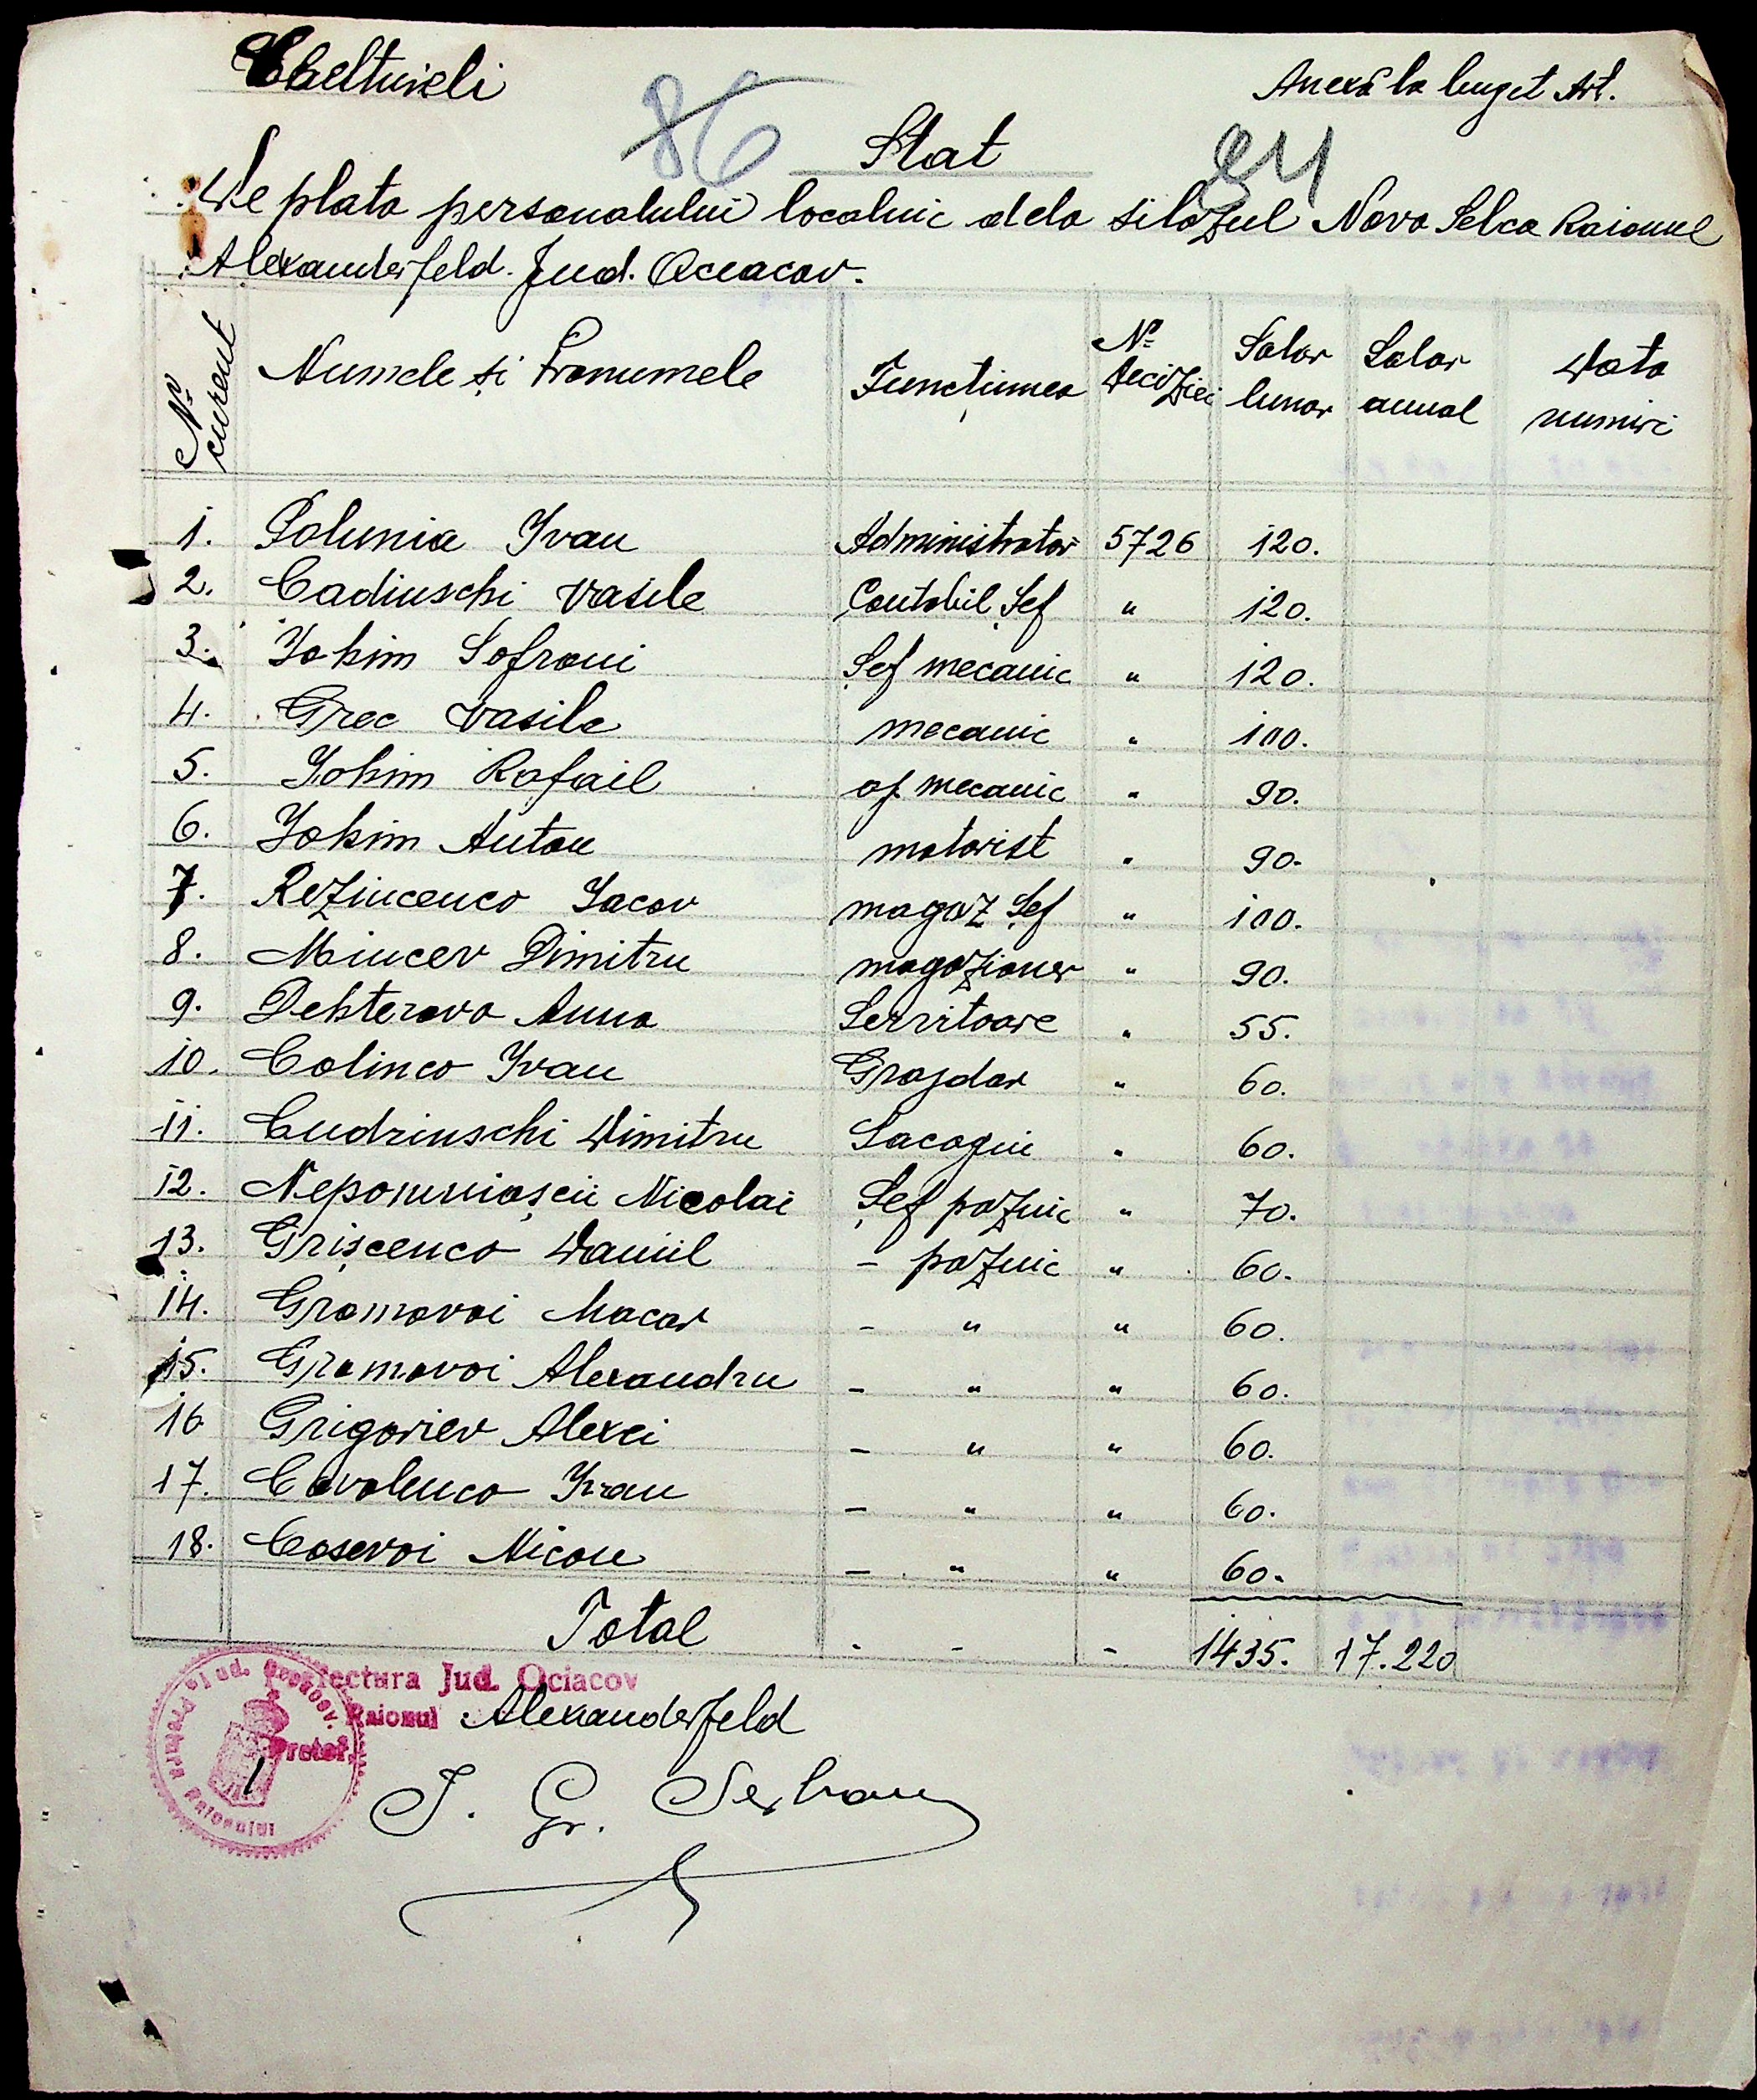 Cheltuieli
Anexă la buget Art.
86
84
Stat
De plata personalului localnic dela silozul Nova Selca Raionul
Alexanderfeld. Jud. Oceacov.
No curent Numele și Pronumele Funcțiunea No Deciziei Salar lunar Salar anual Data numiri
1. Polunia Ivan Administrator 5726 120.
2. Cadinschi Vasile Contabil Șef " 120.
3. Iokim Sofroni Șef mecanic " 120.
4. Grec Vasile mecanic " 100.
5. Iokim Rafail aj. mecanic " 90.
6. Iokim Anton motorist " 90.
7. Rezincenco Iacov magaz Șef " 100.
8. Mincev Dimitru magazioner " 90.
9. Dehterova Anna Servitoare " 55.
10. Colinco Ivan Grajdar " 60.
11. Cudrinschi Dimitru Sacagiu " 60.
12. Nepomniașcii Nicolai Șef paznic " 70.
13. Grișcenco Daniil - paznic " 60.
14. Gromovoi Macar - " " 60.
15. Gromovoi Alexandru - " " 60.
16 Grigoriev Alexei - " " 60.
17. Covalenco Ivan - " " 60.
18. Cosevoi Nicon - " " 60.
Total - - - 1435. 17.220
Prefectura Jud. Ociacov
Raionul Alexanderfeld
Pretor,
I. Gr. Serban